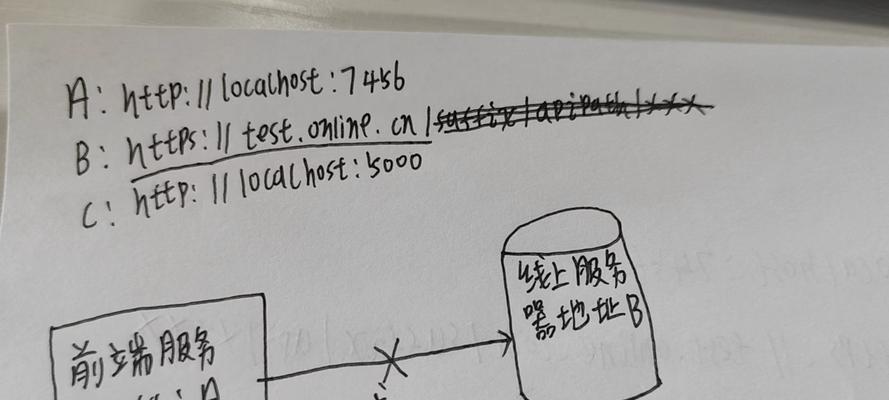 A: http://localhost:7456
B: https://test.online.cn/suffix/apipath/xxx
C: http://localhost:5000
线上服务
器地址B
前端服务
A